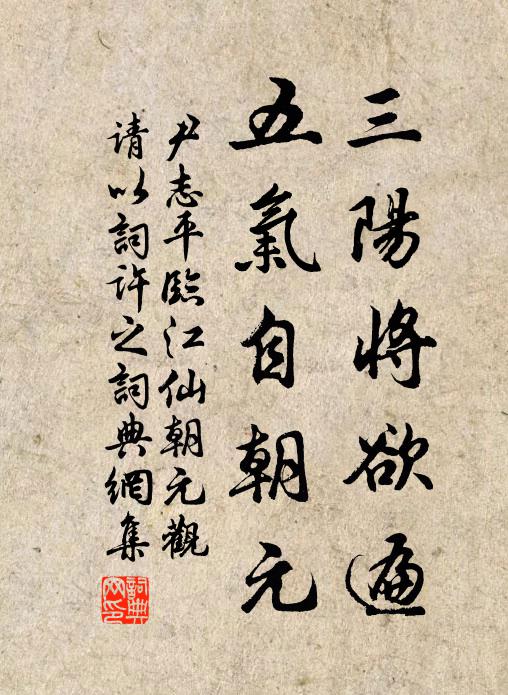 三陽將欲遍
五氣自朝元
尹志平臨江仙朝元觀
请以詞许之詞典網集
詞典
网印